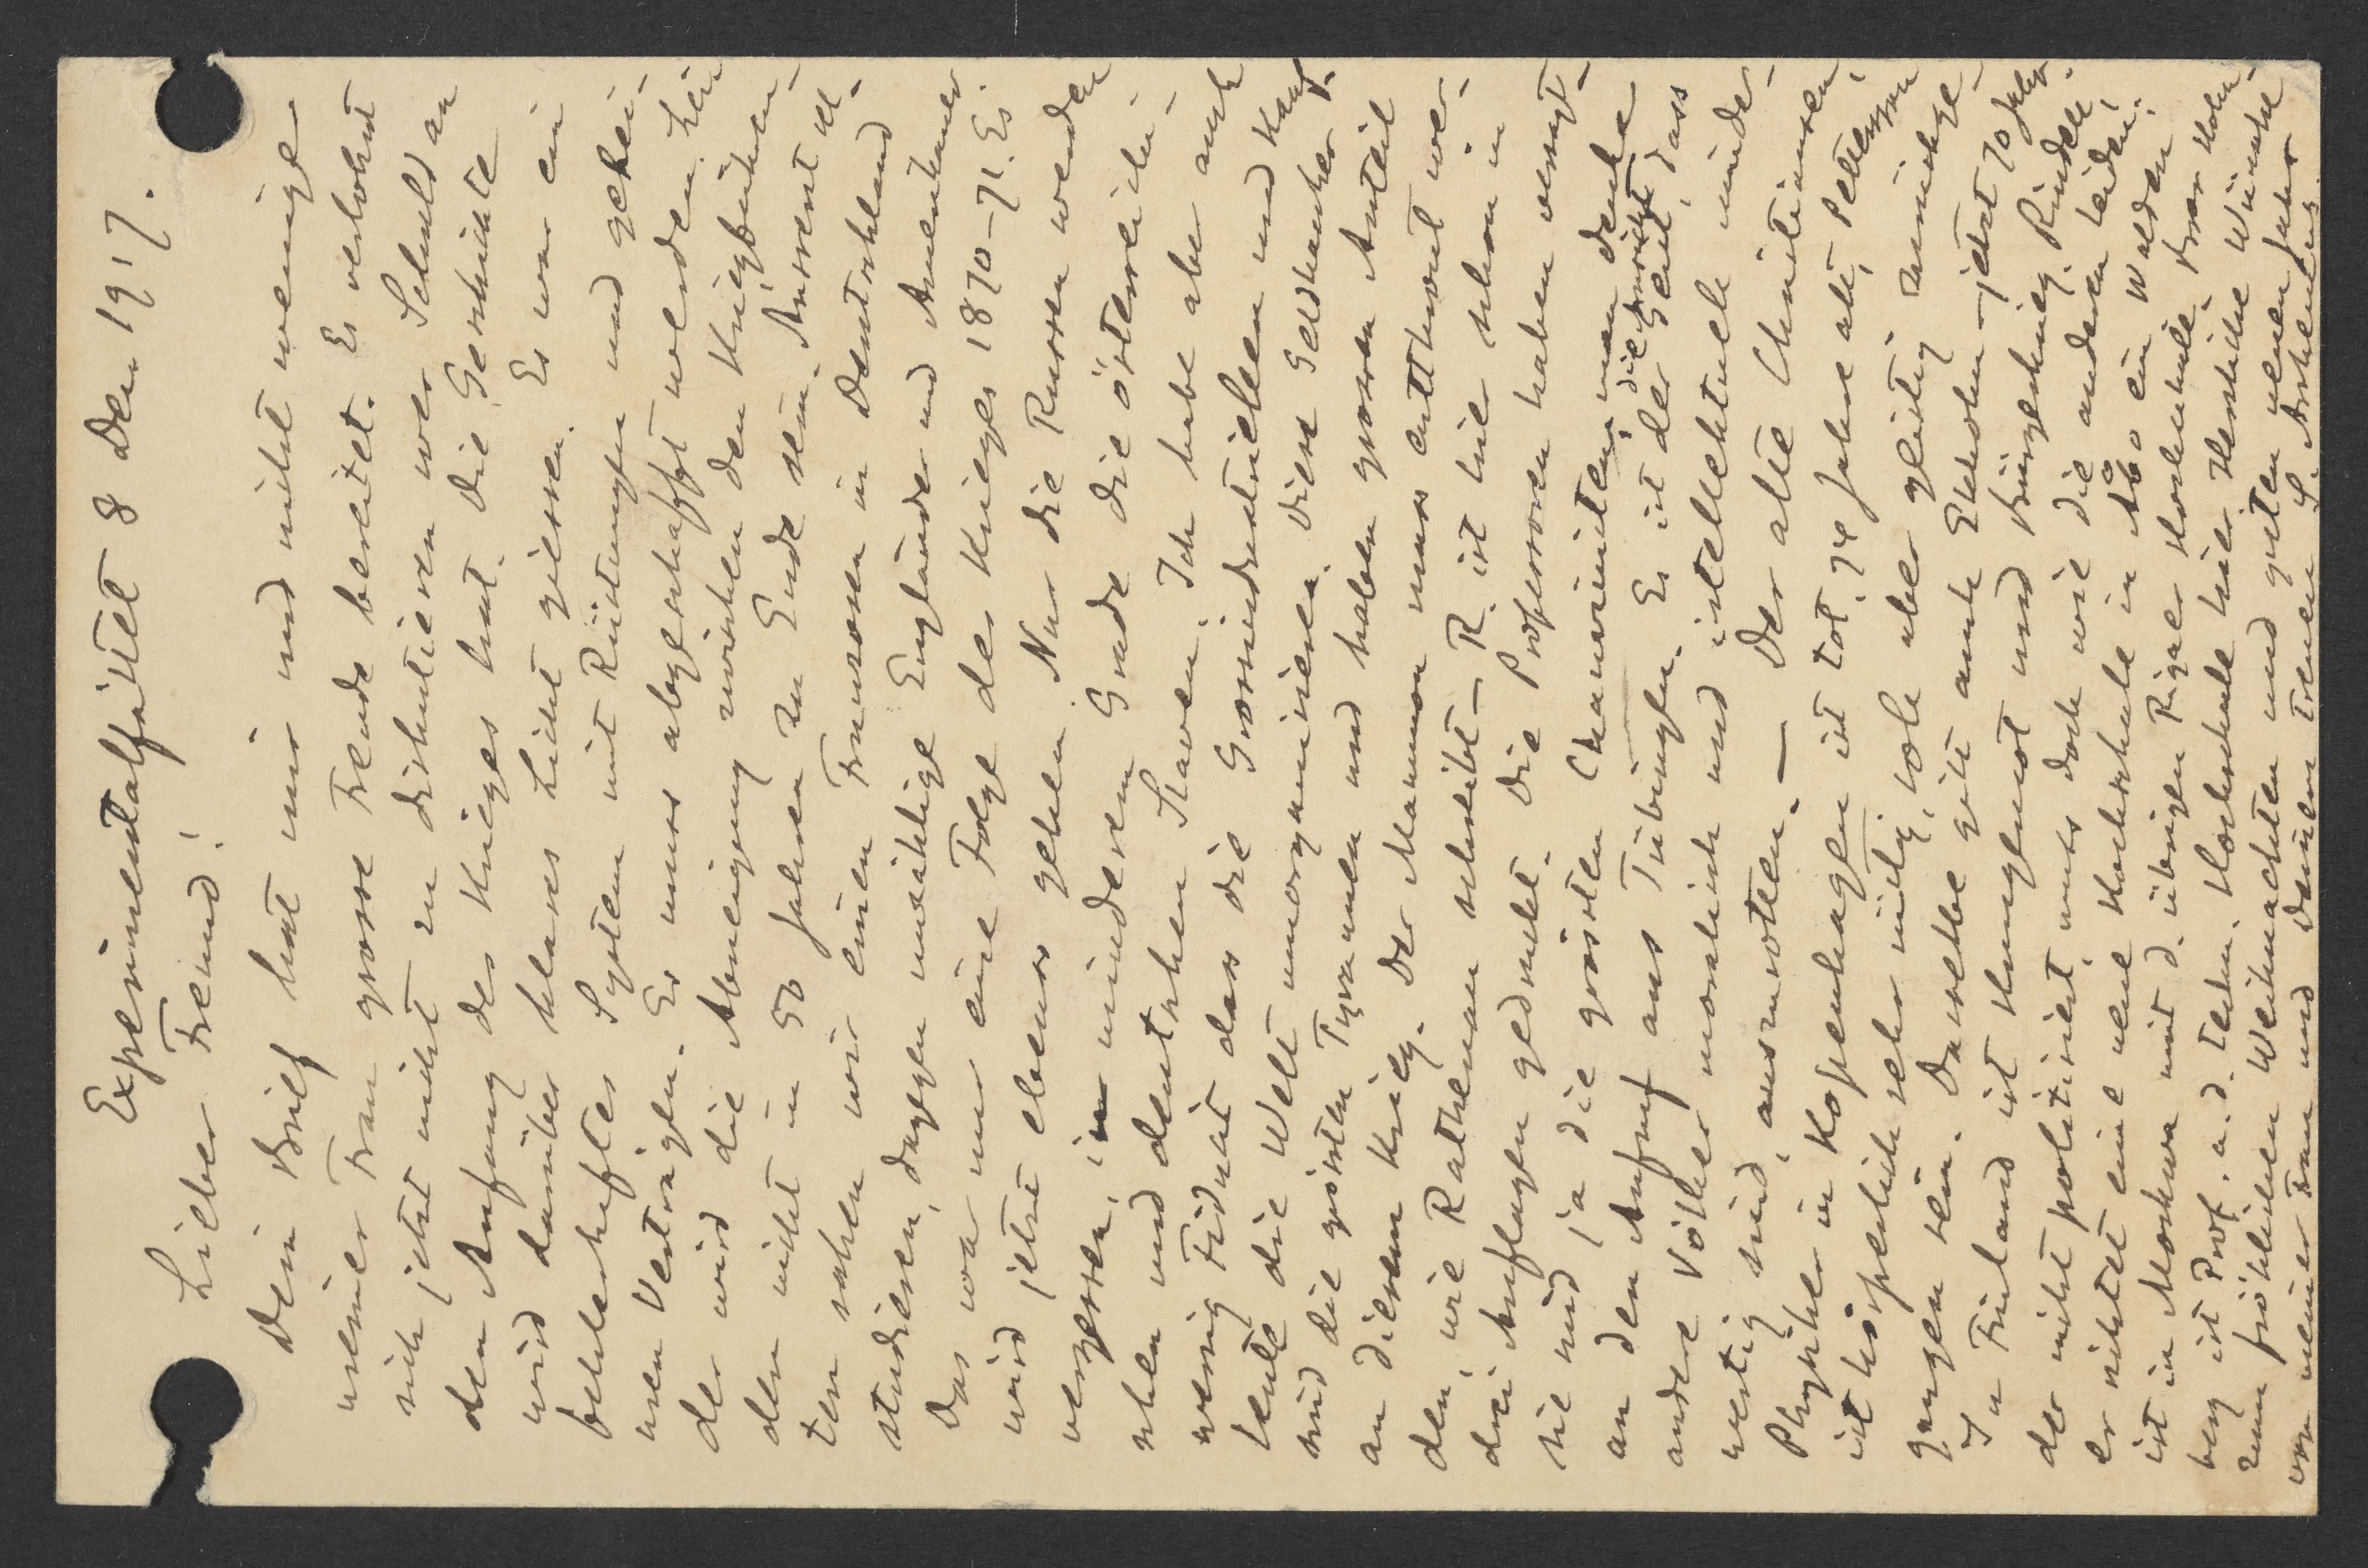 Experimentalfältet 8 Dec 1917.
Lieber Freund!
Dein Brief hat mir und nicht weniger
meiner Frau grosse Freude bereitet. Es verlohnt
sich jetzt nicht zu diskutieren wer Schuld an
den Anfang des Krieges hat. Die Geschichte
wird darüber klares Licht giessen. Es war ein
fehlerhaftes System mit Rüstungen und gehei-
men Verträgen. Es muss abgeschafft werden. Lei-
der wird die Abneigung zwischen den Kriegführen-
den nicht in 50 Jahren zu Ende sein. Äusserst sel-
ten sahen wir einen Franzosen in Deutschland
studieren, dagegen unzählige Engländer und Amerikaner.
Das war nur eine Folge des Krieges 1870-71. Es
wird jetzt ebenso gehen. Nur die Russen werden
vergessen, in minderem Grade die österreichi-
schen und deutschen Slaven. Ich habe aber auch
wenig Fiducit dass die Grossindustriellen und Kauf-
leute die Welt umorganisieren. Diese Geldmenschen
sind die grössten Tyrannen und haben grossen Anteil
an diesem Krieg. Der Mammon muss entthront wer-
den, wie Rathenau schreibt – R. ist hier schon in
drei Auflagen gedruckt. Die Professoren haben versagt –
sie sind ja die grössten Chauvinisten, man denke
an den Aufruf aus Tübingen. Es ist der Geist, dass
andere Völker moralisch und intellektuell minder-
wertig sind, auszurotten. — Der alte Christiansen,
Physiker in Kopenhagen ist tot, 74 Jahre alt, Pettersson
ist körperlich sehr rüstig, soll aber geistig zurückge-
gangen sein. Dasselbe gilt auch Ekholm – jetzt 70 Jahre.
In Finland ist Hungersnot und Bürgerkrieg. Rindell,
der nicht politisiert, muss doch wie die anderen leiden,
er richtet eine neue Hochschule in Åbo ein. Walden
ist in Moskau mit d. übrigen Rigaer Hochschule.
berg ist Prof. a. d. techn. Hochschule hier. Herzliche Wünsche
zum fröhlichen Weihnachten und guten neuen Jahr
von meiner Frau und Deinem treuen S. Arrhenius.